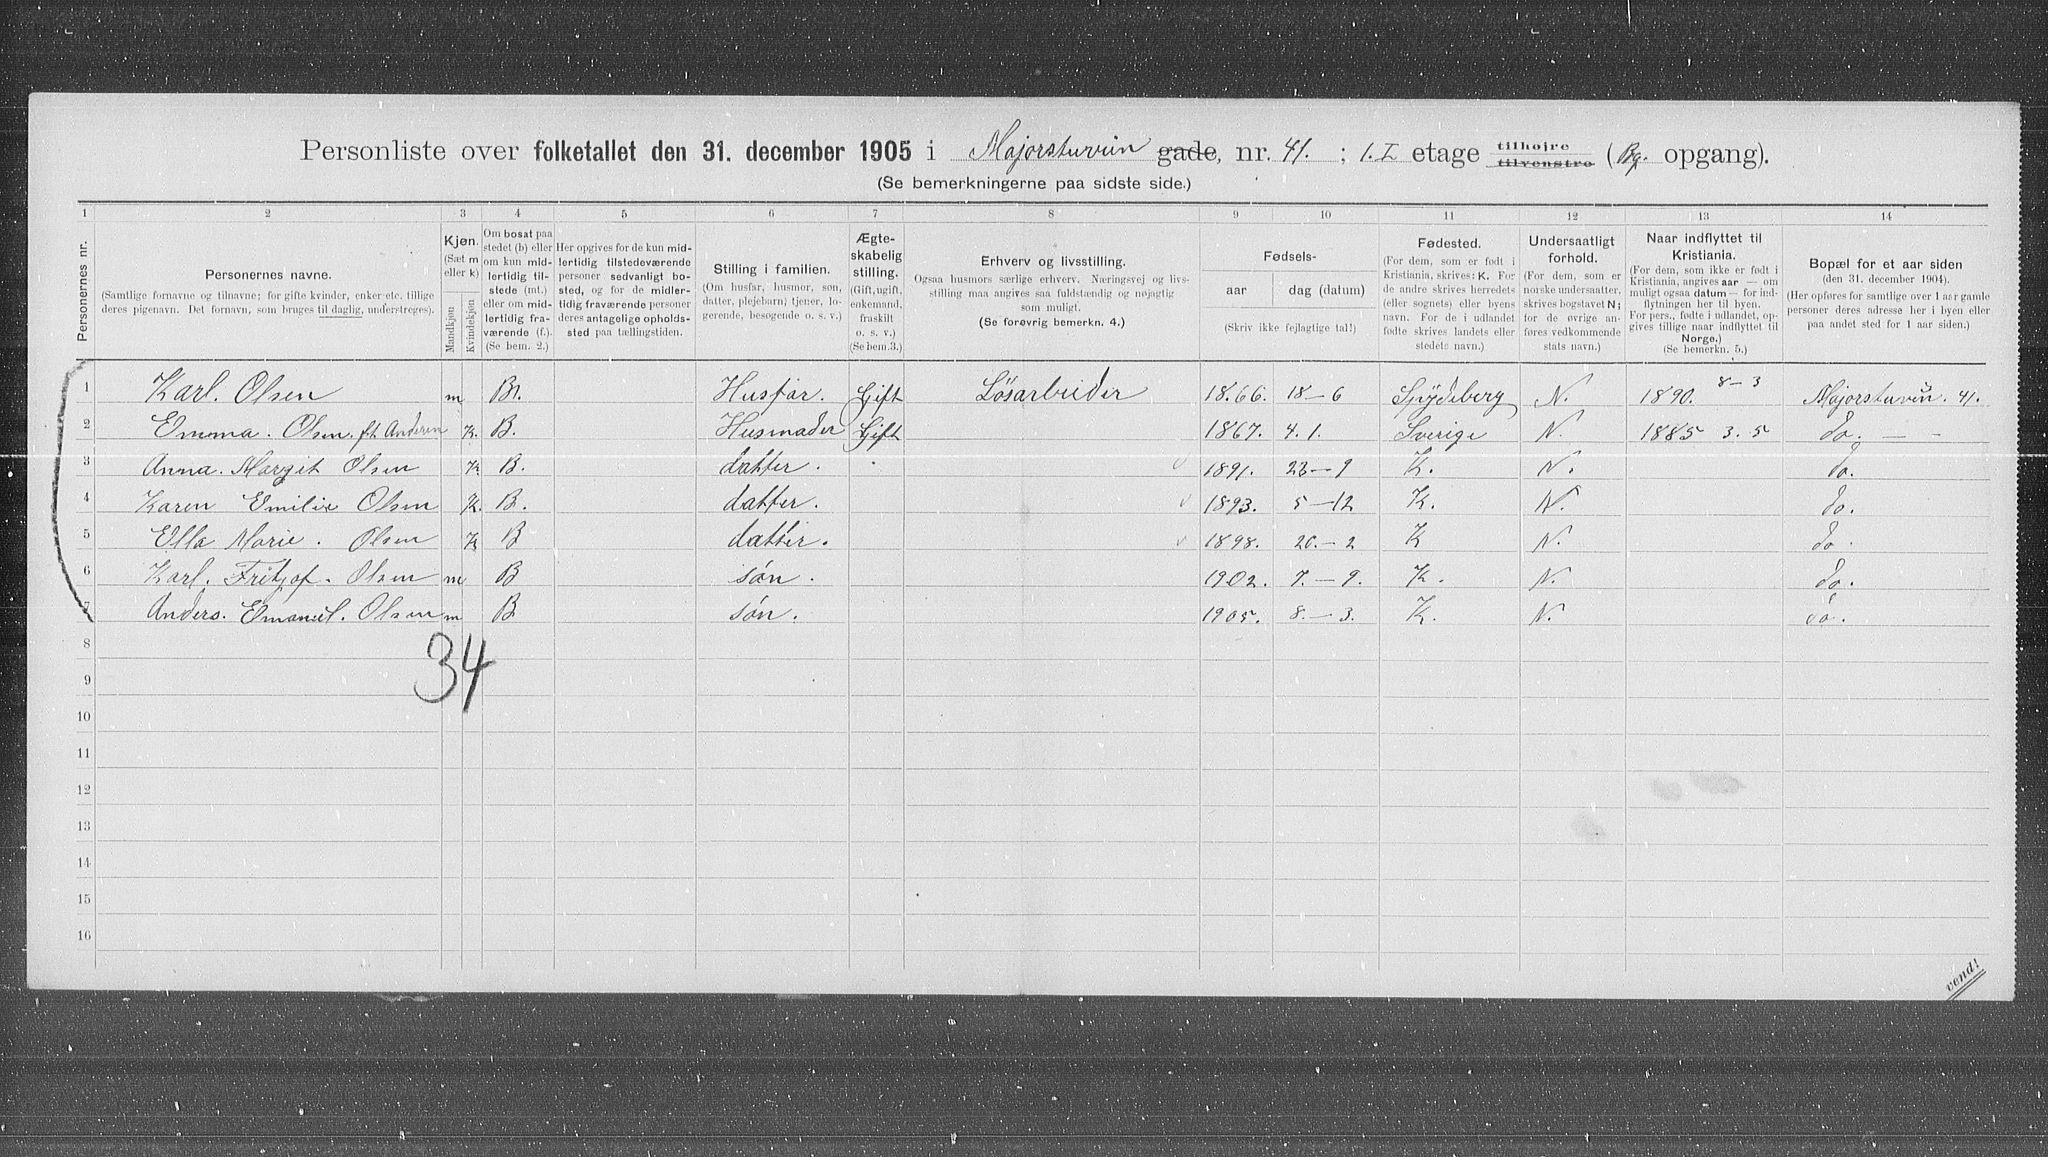 Personliste over folketallet den 31. december 1905 i Majorstuvein gade, nr. 41. ; 1. I etage tilhøjre tilvenstre (Bg. opgang).
(Se bemerkningerne paa sidste side.)
1 2 3 4 5 6 7 8 9 10 11 12 13 14
Personernes nr.
Personernes navne.
(Samtlige fornavne og tilnavne; for gifte kvinder, enker etc. tillige deres pigenavn. Det fornavn, som bruges til daglig, understreges).
Kjøn.
(Sæt m eller k)
Mandkjøn
Kvindekjøn
Om bosat paa stedet (b) eller om kun midlertidig tilstede (mt.) eller om midlertidig fraværende (f.).
(Se bem. 2.)
Her opgives for de kun midlertidig tilstedeværende personer sedvanligt bosted, og for de midlertidig fraværende personer deres antagelige opholdssted paa tællingstiden.
Stilling i familien.
(Om husfar, husmor, søn, datter, plejebarn) tjener, logerende, besøgende o. s. v.)
Ægteskabelig stilling.
(Gift, ugift, enkemand, fraskilt o. s. v.)
(Se bem. 3.)
Erhverv og livsstilling.
Ogsaa husmors særlige erhverv. Næringsvej og livsstilling maa angives saa fuldstændig og nøjagtig som muligt.
(Se forøvrig bemerkn. 4.)
Fødsels-
aar
dag (datum)
(Skriv ikke fejlagtige tal!)
Fødested.
(For dem, som er født i Kristiania, skrives: K. For de andre skrives herredets (eller sognets) eller byens navn. For de i udlandet fødte skrives landets eller stedets navn.)
Undersaatligt forhold.
(For dem, som er norske undersaatter, skrives bogstavet N; for de øvrige anføres vedkommende stats navn.)
Naar indflyttet til Kristiania.
(For dem, som ikke er født i Kristiania, angives aar — om muligt ogsaa datum — for indflytningen her til byen. For pers., fødte i udlandet, opgives tillige naar indflyttet til Norge.)
(Se bemerkn. 5.)
Bopæl for et aar siden
(den 31. december 1904).
(Her opføres for samtlige over 1 aar gamle personer deres adresse her i byen eller paa andet sted for 1 aar siden.)
1 Karl. Olsen m B. Husfar. Gift Løsarbeider 1866. 18-6 Spydeberg N. 1890. 8-3 Majorstuvein. 41.
2 Emma. Olsen. ft Andersen K. B. Husmoder Gift 1867. 4.1. Sverige N. 1885 3.5 do. — —
3 Anna. Margit Olsen K. B. datter. 1891. 23-9 K. N. do.
4 Karen Emilie Olsen K. B. datter. 1893. 5-12 K. N. do.
5 Ella Marie. Olsen K B datter. 1898. 20.-2 K N. do.
6 Karl. Fritjof. Olsen m B søn. 1902. 7.-9. K. N. do.
7 Anders. Emanuel. Olsen m B søn. 1905. 8.-3. K. N. do.
8
34
9
10
11
12
13
14
15
16
vend!